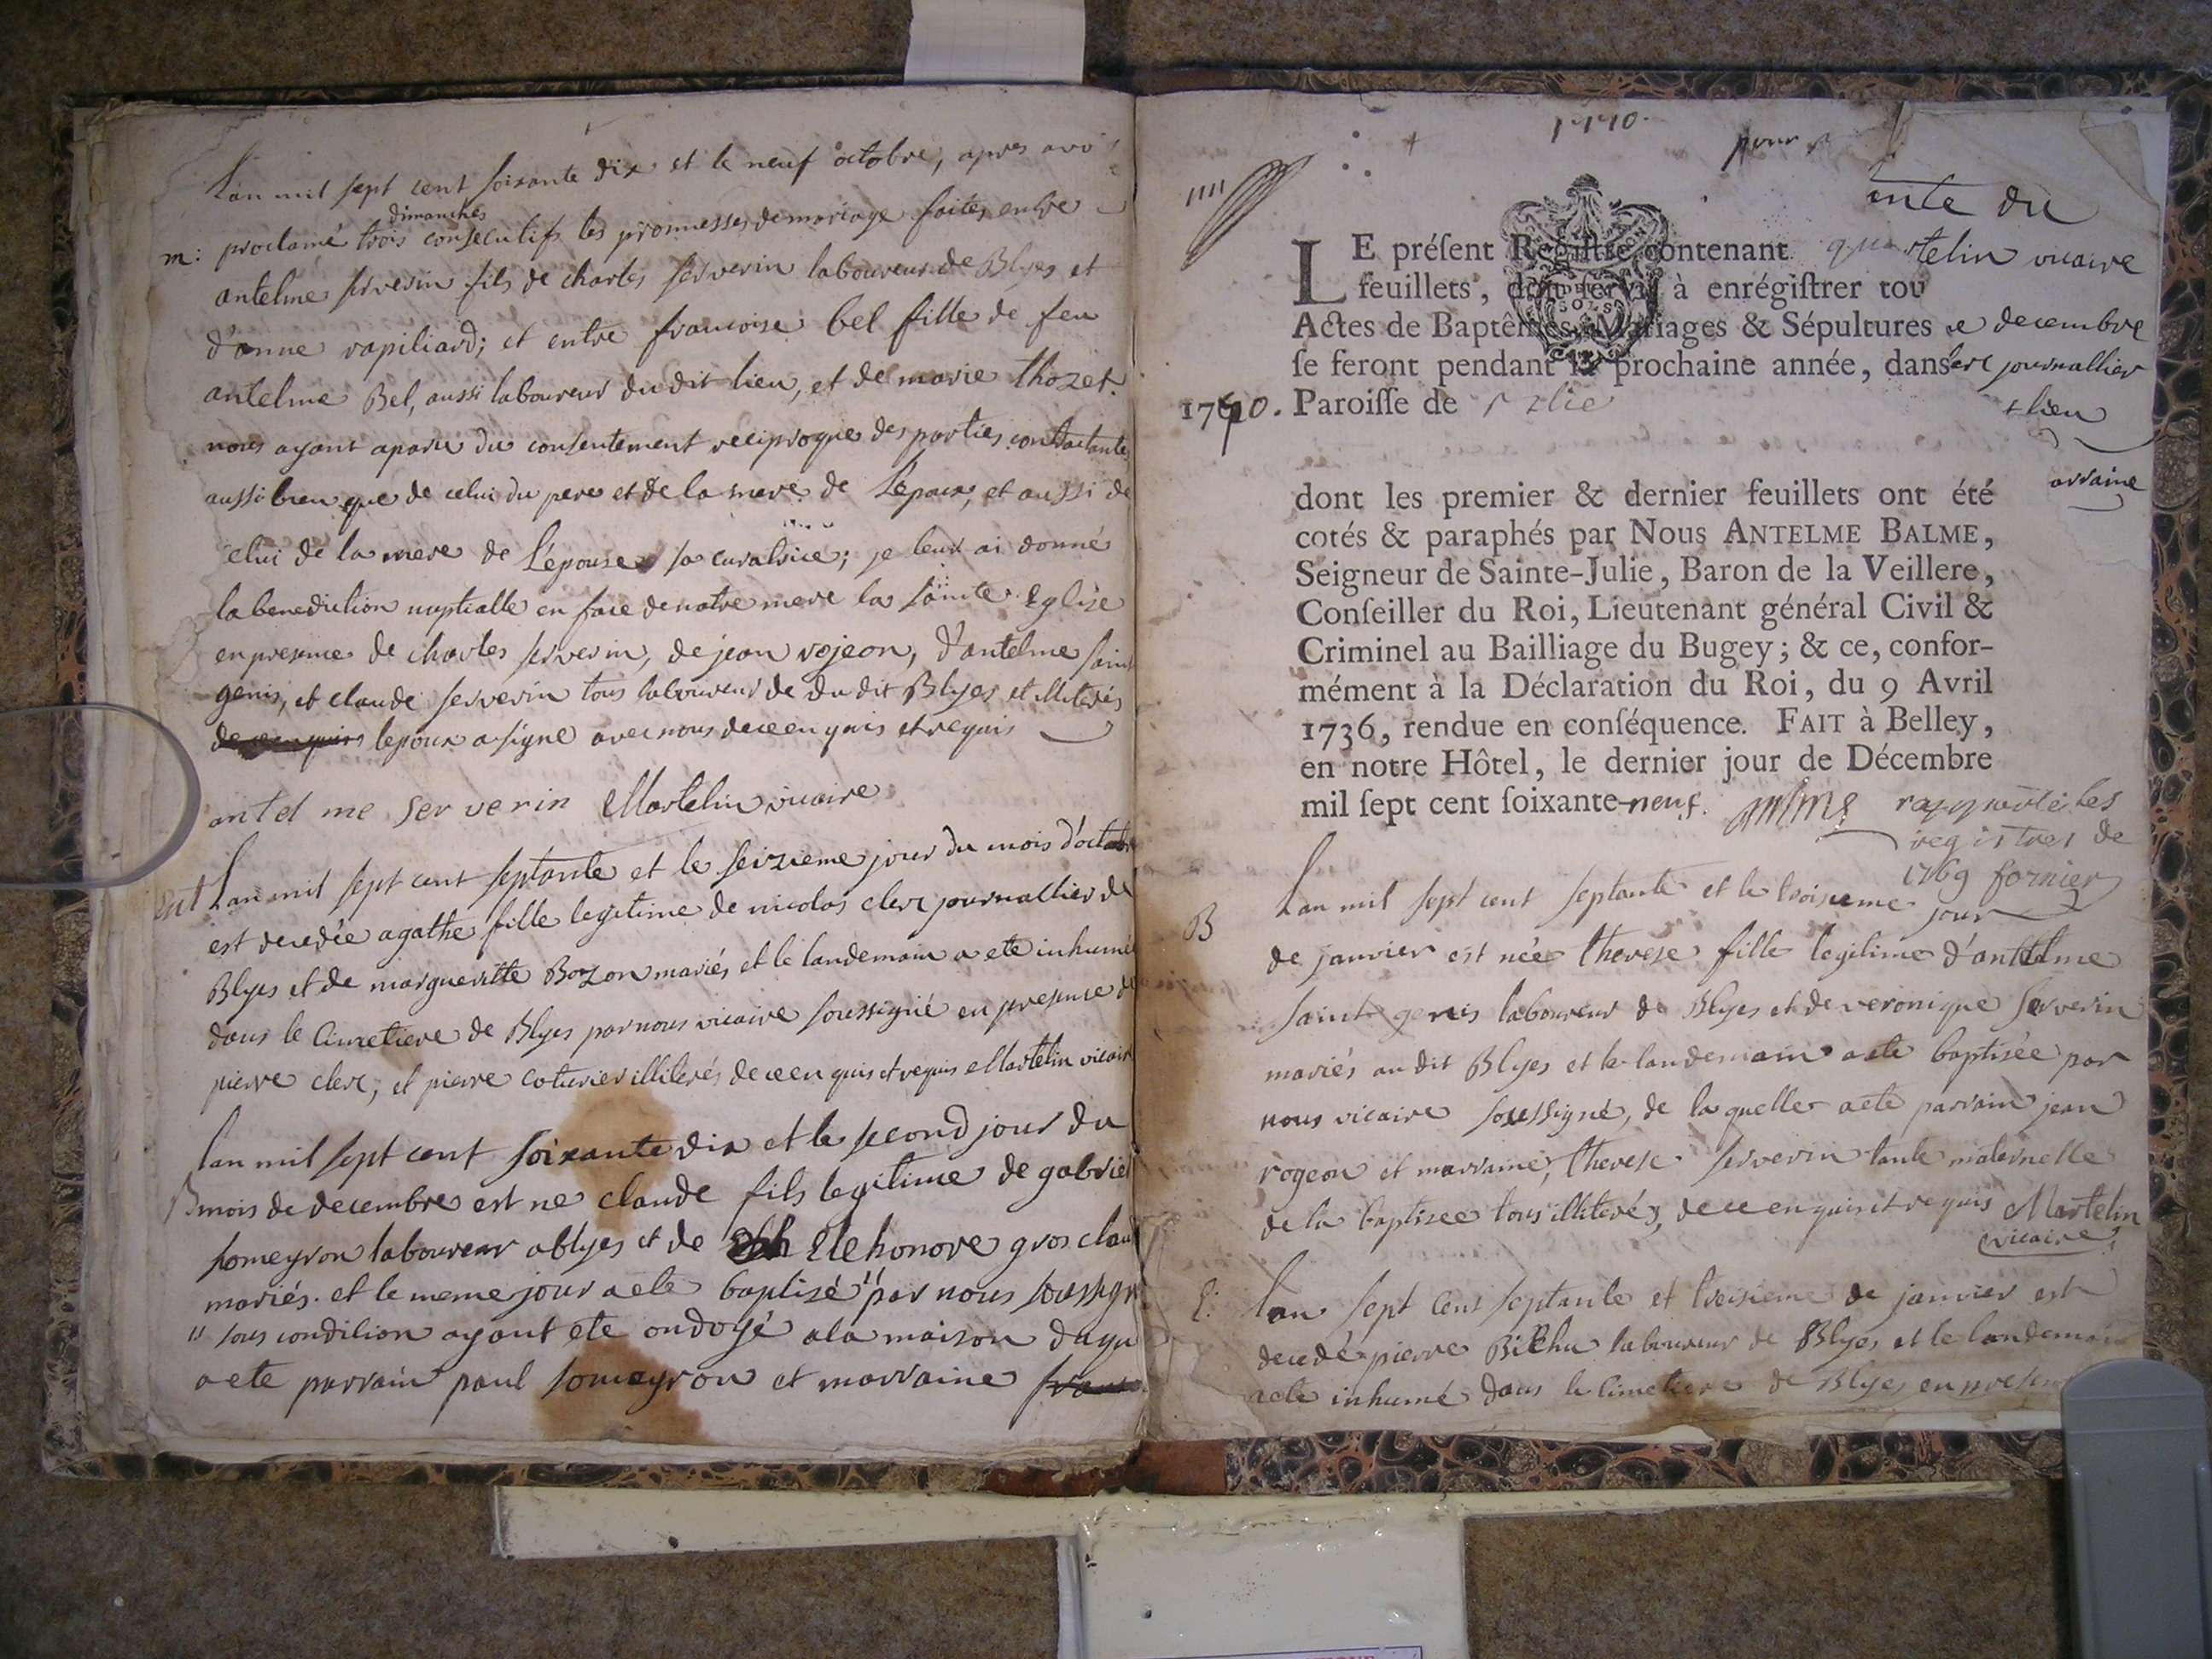 L'an mil sept cent soixante dix et le neuf octobre, apres avoi
dimanches
m: proclamé trois consecutifs les promesses de mariage faites entre
antelme serverin fils de charles serverin laboureur de Blyes et
d'anne rapiliard; et entre francoise bel fille de feu
antelme Bel, aussi laboureur du dit lieu, et de marie thozet.
nous ayant aparu du consentement reciproque des parties contractantes
aussi bien que de celui du pere et de la mere de L'epoux, et aussi de
celui de la mere de L'epouse sa curatrice; je leur ai donné
la benediction nuptialle en face de notre mere la sainte Eglise
en presence de charles serverin, de jean rojeon, d'antelme saint
genis, et claude serverin tous laboureur de du dit Blyes et illiterés
de ce enquis lepoux a signé avec nous de ce enquis et requis
antel me ser verin Martelin vicaire
Ent L'an mil sept cent septante et le seizieme jour du mois d'octobre
est decedée agathe fille legitime de nicolas clerc journallier de
Blyes et de margueritte Bozon mariés, et le landemain a ete inhumé
dans le cimetiere de Blyes par nous vicaire soussigné en presence de
pierre clerc, et pierre coturier illiterés de ce enquis et requis Martelin vicair
Lan mil sept cent soixante dix et le second jour du
B mois de decembre est ne claude fils legitime de gabriel
someyron laboureur a blyes et de Elehonore gros claud
mariés. et le meme jour a ete baptisé " par nous soussign
" sous condition ayant ete ondoyé a la maison duqu
a ete parrain paul someyron et marraine
1770.
pour
ente du
LE préſent Regiſtre contenant telin vicaire
feuillets, dont ſervir à enrégiſtrer tou
Actes de Baptêmes, Mariages & Sépultures e decembre
ſe feront pendant la prochaine année, dans erc journallier
1770. Paroiſſe de lieu
arraine
dont les premier & dernier feuillets ont été
cotés & paraphés par Nous ANTELME BALME,
Seigneur de Sainte-Julie, Baron de la Veillere,
Conſeiller du Roi, Lieutenant général Civil &
Criminel au Bailliage du Bugey; & ce, confor-
mément à la Déclaration du Roi, du 9 Avril
1736, rendue en conſéquence. FAIT à Belley,
en notre Hôtel, le dernier jour de Décembre
mil ſept cent ſoixante-neuf. rapporté les
registres de
1769 fornier
B Lan mil sept cent septante et le troisieme jour
de janvier est née therese fille legitime d'antelme
saint genis laboureur de Blyes et de veronique serverin
mariés au dit Blyes et le landemain a ete baptisée par
nous vicaire soussigné, de laquelle a ete parrain jean
rogeon et marraine, therese serverin tante maternelle
de la baptisee tous illiterés, de ce enquis et requis Martelin
vicaire
E: Lan sept cent septante et troisieme de janvier est
decedé pierre laboureur de Blyes et le landemain
a ete inhumé dans le cimetiere de Blyes en presen